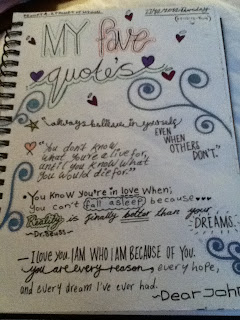 MY fave
quote's
"always believe in yourself
EVEN
WHEN
OTHERS
DON'T."
"You don't know
what you're alive for,
until you know what
you would die for."
• You know you're in love when;
you can't fall asleep because
Reality is finally better than your
DREAMS.
~Dr. Seuss~
— I love you. I AM WHO I AM BECAUSE OF YOU.
you are every reason, every hope,
and every dream I've ever had.
~Dear John